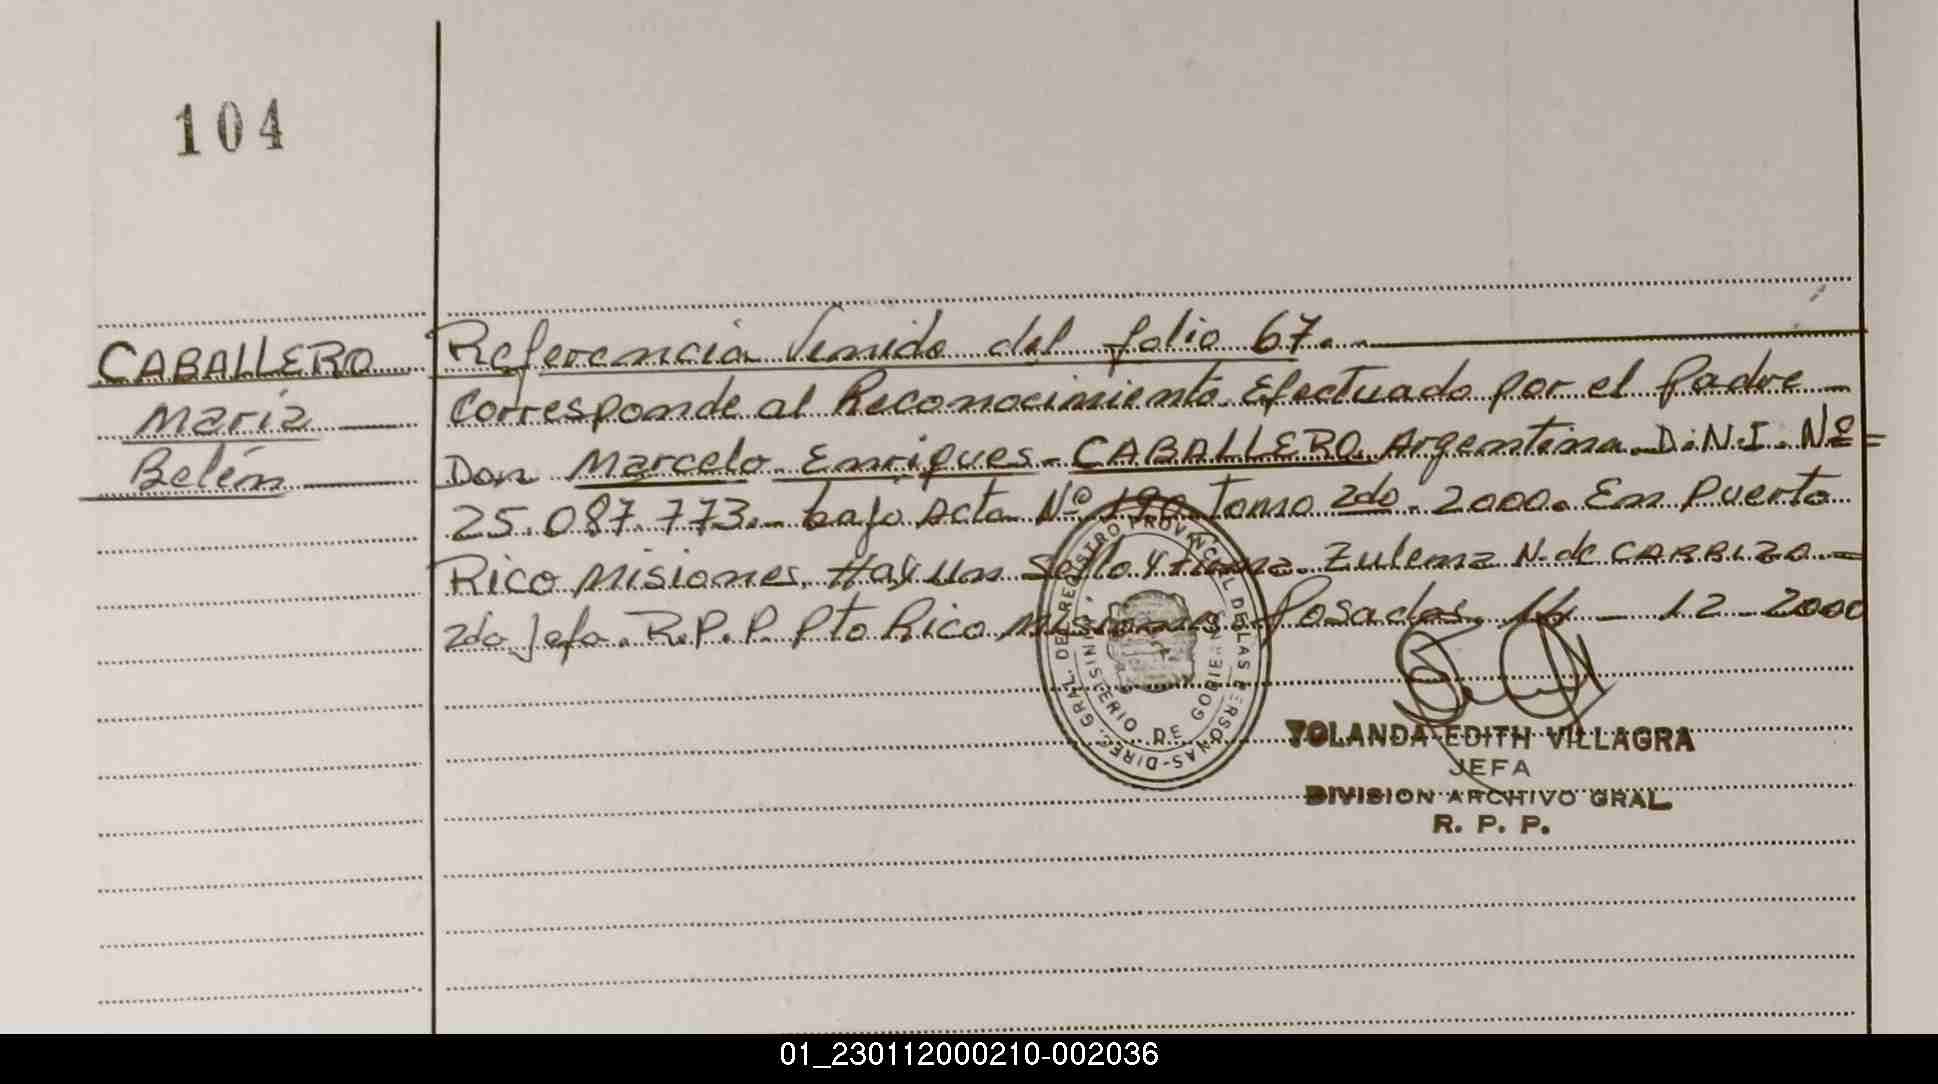 104
CABALLERO
Maria
Belén
Referencia Venida del folio 67.
Corresponde al Reconocimiento Efectuado por el Padre
Don Marcelo Enriques - CABALLERO. Argentina. D.N.I. Nº
25.087.773. - bajo Acta Nº 190 Tomo 2do. 2000. En Puerto
Rico Misiones. Hay un Sello y firma. Zulema N. de
2do Jefa. R.P.P. Pto Rico Misiones. Posadas. - 12 - 2000
DIREC. GRAL. DEL REGISTRO PROVINCIAL DE LAS PERSONAS
MINISTERIO DE GOBIERNO
YOLANDA EDITH VILLAGRA
JEFA
DIVISION ARCHIVO GRAL
R. P. P.
01_230112000210-002036